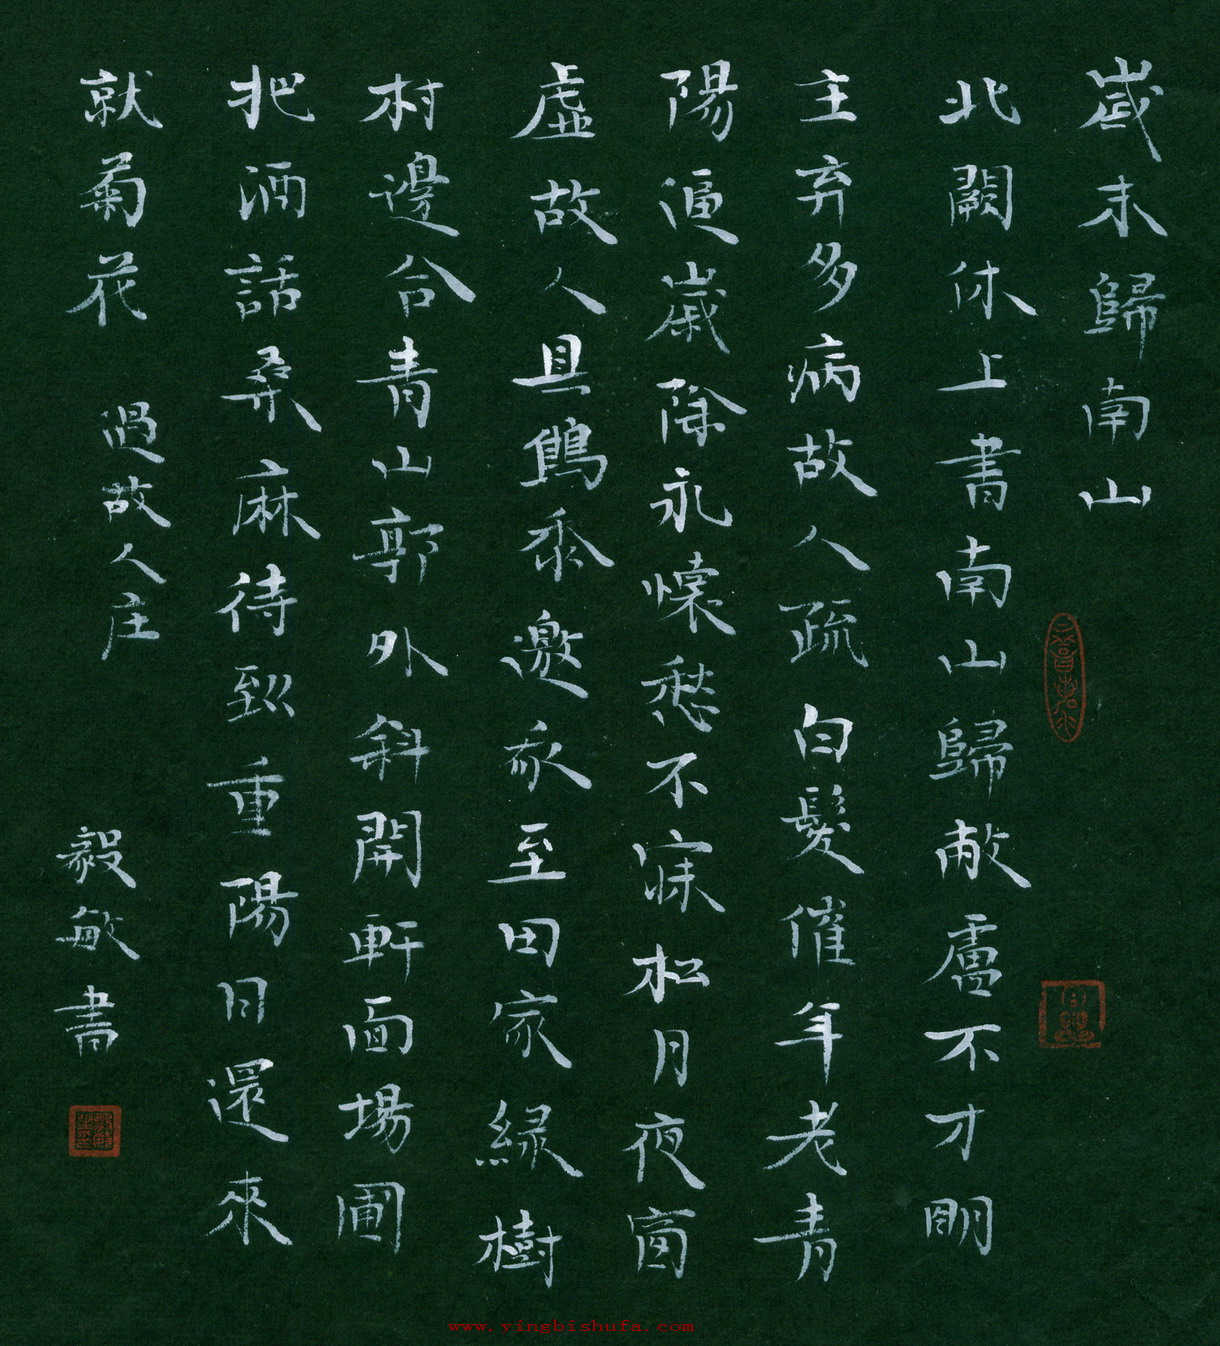 歲末歸南山
北闕休上書南山歸敝廬不才明
主弃多病故人疏白髮催年老青
陽逼歲除永懷愁不寐松月夜窗
虛故人具鷄黍邀我至田家緑樹
村邊合青山郭外斜開軒面場圃
把酒話桑麻待到重陽日還來
就菊花 過故人庄
毅敏書
www.yingbishufa.com